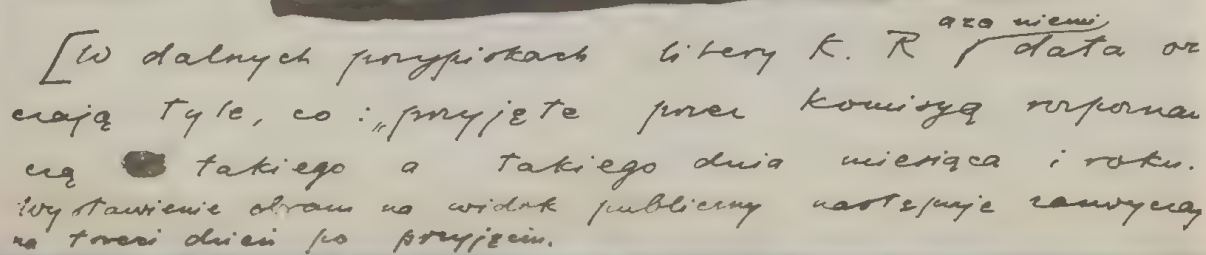 a za niemi
[W dalnych przypiskach litery K. R data oz
czają tyle, co: „przyjęte przez Komisyą rozpoznaw
czą takiego a takiego dnia miesiąca i roku.
Wystawienie obrazu na widok publiczny następuje zazwyczaj
na trzeci dzień po przyjęciu.